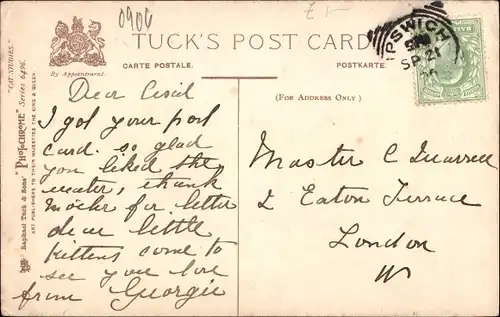 0906
£1-
TUCK'S POST CARD
By Appointment.
CARTE POSTALE.
POSTKARTE
"CAT STUDIES."
Raphael Tuck & Sons' "PHOTOCHROME" Series 6496.
ART PUBLISHERS TO THEIR MAJESTIES THE KING & QUEEN.
(FOR ADDRESS ONLY.)
IPSWICH
SP 21
Dear Cecil
I got your post
card. so glad
you liked the
water, thank
mother for letter
dear little
kittens come to
see you love
from Georgie
Master C
2 Eaton Terrace
London
W